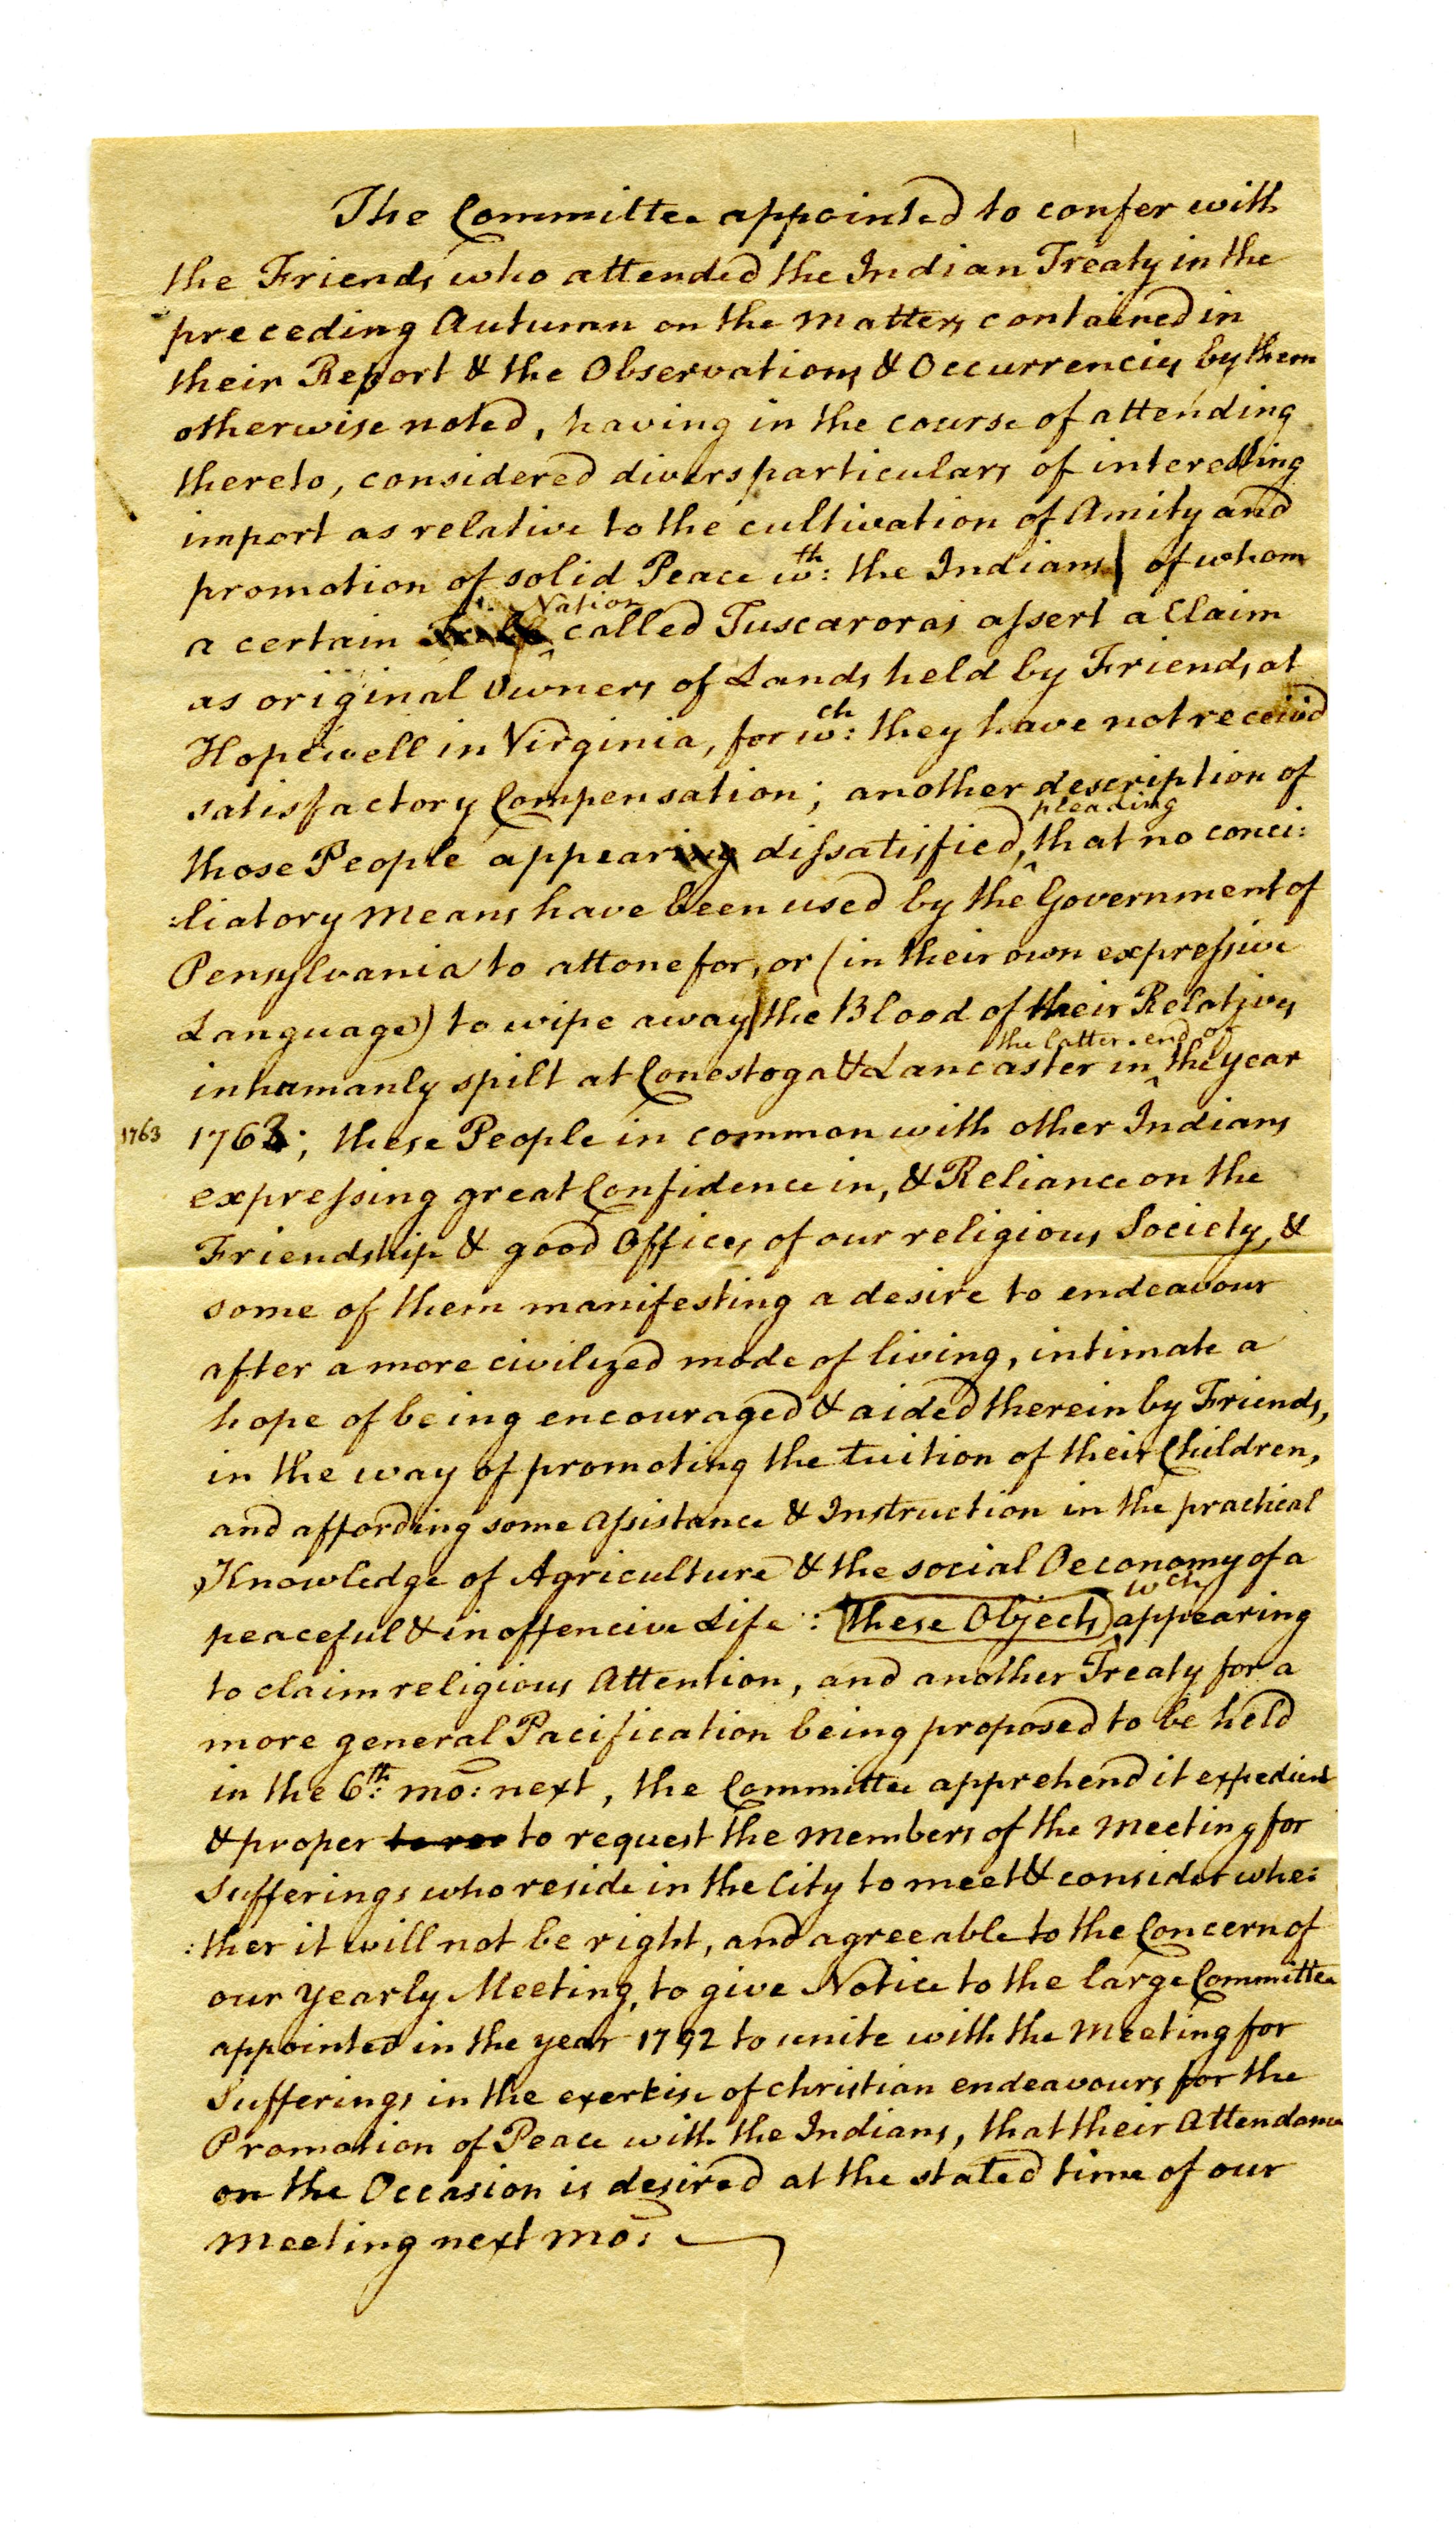 The Committee appointed to confer with
the Friends who attended the Indian Treaty in the
preceding Autumn on the Matters contained in
their Report & the Observations & Occurrencies by them
otherwise noted, having in the course of attending
thereto, considered divers particulars of interesting
import as relative to the cultivation of Amity and
promotion of solid Peace wth: the Indians| of whom
Nation
a certain Tribe called Tuscaroras assert a Claim
as original Owners of Lands held by Friends at
Hopewell in Virginia, for wch: they have not receiv'd
satisfactory Compensation; another description of
pleading
those People appearing dissatisfied, that no conci:
:liatory Means have been used by the Government of
Pensylvania to attone for, or (in their own expressive
Language) to wipe away the Blood of their Relatives
the latter end of
inhumanly spilt at Conestoga & Lancaster in the year
1763 1763; these People in common with other Indians
expressing great Confidence in, & Reliance on the
Friendship & good Offices of our religious Society, &
some of them manifesting a desire to endeavour
after a more civilized mode of living, intimate a
hope of being encouraged & aided therein by Friends,
in the way of promoting the tuition of their Children,
and affording some Assistance & Instruction in the practical
Knowledge of Agriculture & the social Oeconomy of a
wch
peaceful & inoffencive Life: these Objects appearing
to claim religious Attention, and another Treaty for a
more general Pacification being proposed to be held
in the 6th: mo: next, the Committee apprehend it expedient
& proper to request the Members of the Meeting for
Sufferings who reside in the City to meet & consider whe:
:ther it will not be right, and agreeable to the Concern of
our Yearly Meeting, to give Notice to the large Committee
appointed in the year 1792 to unite with the Meeting for
Sufferings in the exercise of christian endeavours for the
Promotion of Peace with the Indians, that their Attendance
on the Occasion is desired at the stated time of our
Meeting next mo: